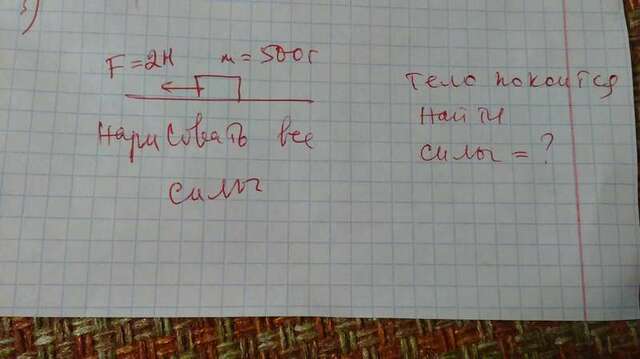 3)
F=2Н m=500г
Нарисовать все
силы
тело покоится
Найти
силы = ?